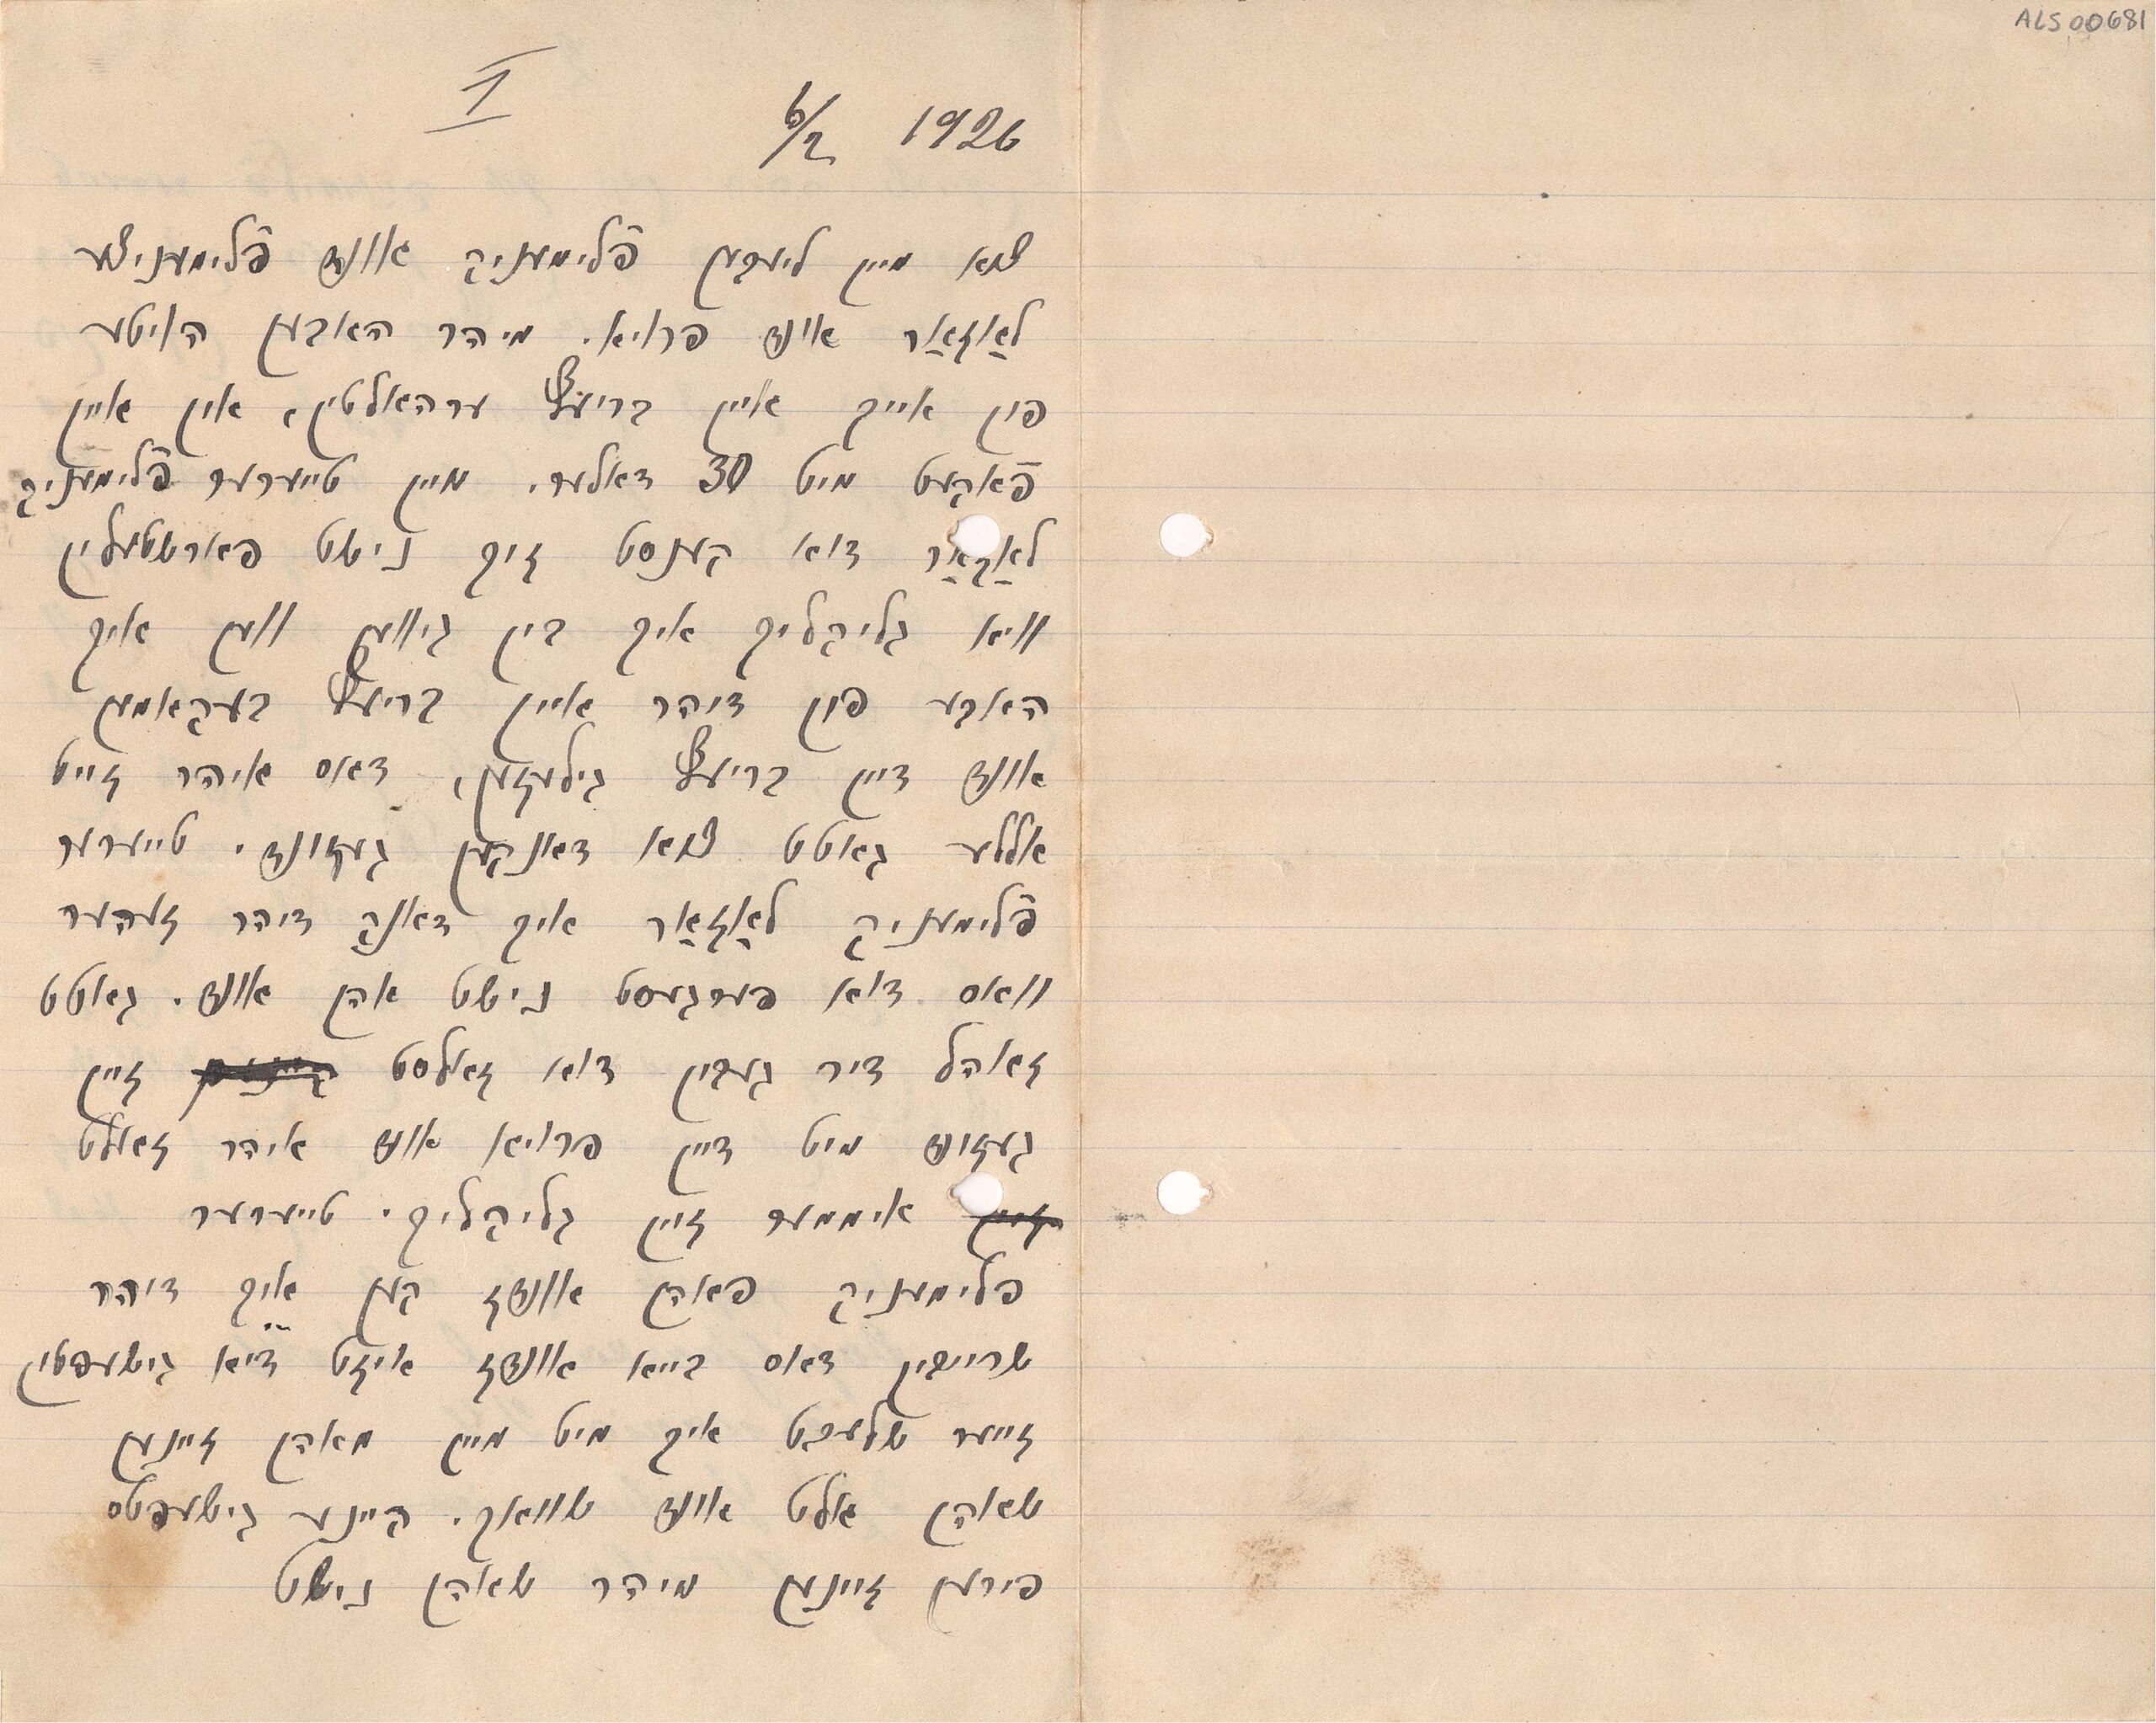 ALS 00681
I
6/2 1926
צוא מיין ליעבען פּלימעניק אונד פּלימעניצע
לאַזאַר אונד פרויא. מיהר האבען הויטע
פון אייך איין בריעף ערהאלטין, אין איין
פּאקעט מיט 30 דאלער. מיין טייערער פּלימעניק
לאַזאַר דוא קענסט זיך נישט פארשטעלין
וויא גליקליך איך בין גיווען ווען איך
האבע פון דיהר איין בריעף בעקאמען
אונד דיין בריעף גילעזען, דאס איהר זייט
אללע גאטט צוא דאנקען געזונד. טייערער
פּלימעניק לאַזאַר איך דאנק דיהר זעהער
וואס דוא פערגעסט נישט אהן אונד. גאטט
זאהל דיר געבין דוא זאלסט זיין
געזונד מיט דיין פרויא אונד איהר זאלט
זיין אימער זיין גליקליך. טייערער
פלימעניק פאהן אונדז קען איך דיהר
שרייבין דאס בייא אונדז איזט דיא גישעפטין
זייער שלעכט איך מיט מיין מאהן זיינען
שאהן אלט אונד שוואך. קיינע גישעפטס
פירען זיינען מיהר שאהן נישט